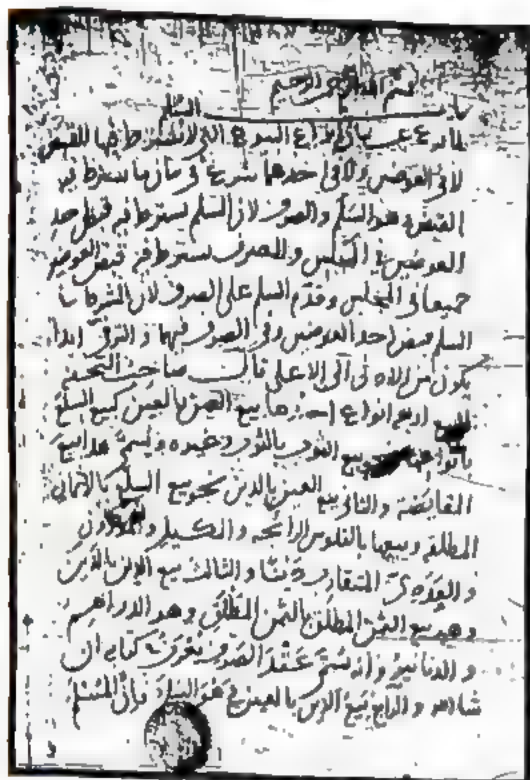 بسم الله الرحمن الرحيم
باب السلم
لما فرغ عن بيان انواع البيوع التى لا يشترط فيها القبض
لا فى العوضين ولا فى احدهما شرع فى بيان ما يشترط فيه
القبض وهو السلم والصرف لان السلم يشترط فيه قبض احد
العوضين فى المجلس والصرف يشترط فيه قبض العوضين
جميعا فى المجلس وقدم السلم على الصرف لان الشرط فى
السلم قبض احد العوضين وفى الصرف فيهما والترقى ابدا
يكون من الادنى الى الاعلى قال صاحب التحفة
البيع اربع انواع احدها بيع العين بالعين كبيع السلع
بانواعها بيع الثوب بالثوب وغيره ويسمى هذا بيع
المقايضة والثانى بيع العين بالدين نحو بيع السلع بالاثمان
المطلقة وبيعها بالفلوس الرائجة والمكيل والموزون
والعددى المتقارب دينا والثالث بيع الدين بالدين
وهو بيع الثمن المطلق بالثمن المطلق وهو الدراهم
والدنانير وانه يسمى عقد الصرف يعرف فى كتابه ان
شا الله والرابع بيع الدين بالعين وهو السلم فان المسلم